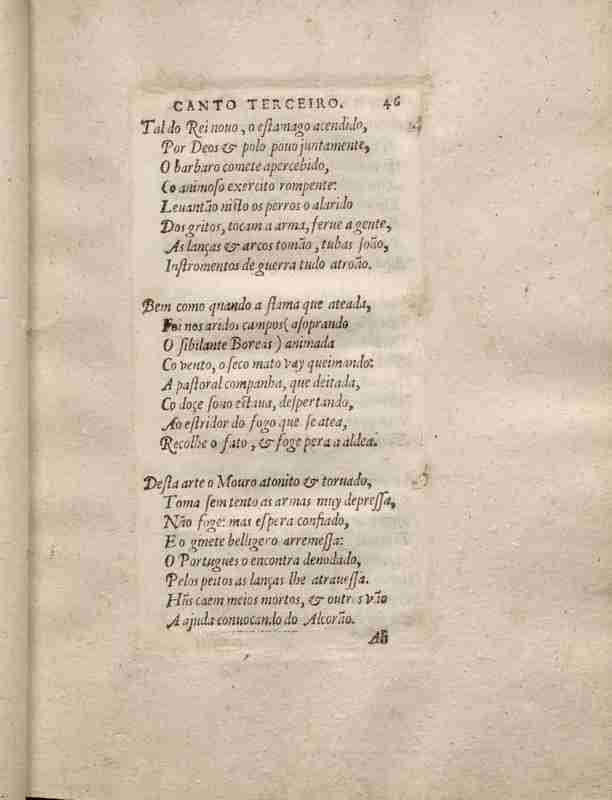 CANTO TERCEIRO. 46
Tal do Rei nouo, o eſtamago acendido,
Por Deos & polo pouo juntamente,
O barbaro comete apercebido,
Co animoſo exercito rompente:
Leuantão niſto os perros o alarido
Dos gritos, tocam a arma, ferue a gente,
As lanças & arcos tomão, tubas ſoão,
Inſtromentos de guerra tudo atroão.
Bem como quando a flama que ateada,
Foi nos aridos campos (aſoprando
O ſibilante Boreas) animada
Co vento, o ſeco mato vay queimando:
A paſtoral companha, que deitada,
Co doçe ſono eſtaua, deſpertando,
Ao eſtridor do fogo que ſe atea,
Recolhe o fato, & foge pera a aldea.
Deſta arte o Mouro atonito & toruado,
Toma ſem tento as armas muy depreſſa,
Não foge: mas eſpera confiado,
E o ginete belligero arremeſſa:
O Portugues o encontra denodado,
Pelos peitos as lanças lhe atraueſſa.
Hũs caem meios mortos, & outros vão
A ajuda conuocando do Alcorão.
Ali